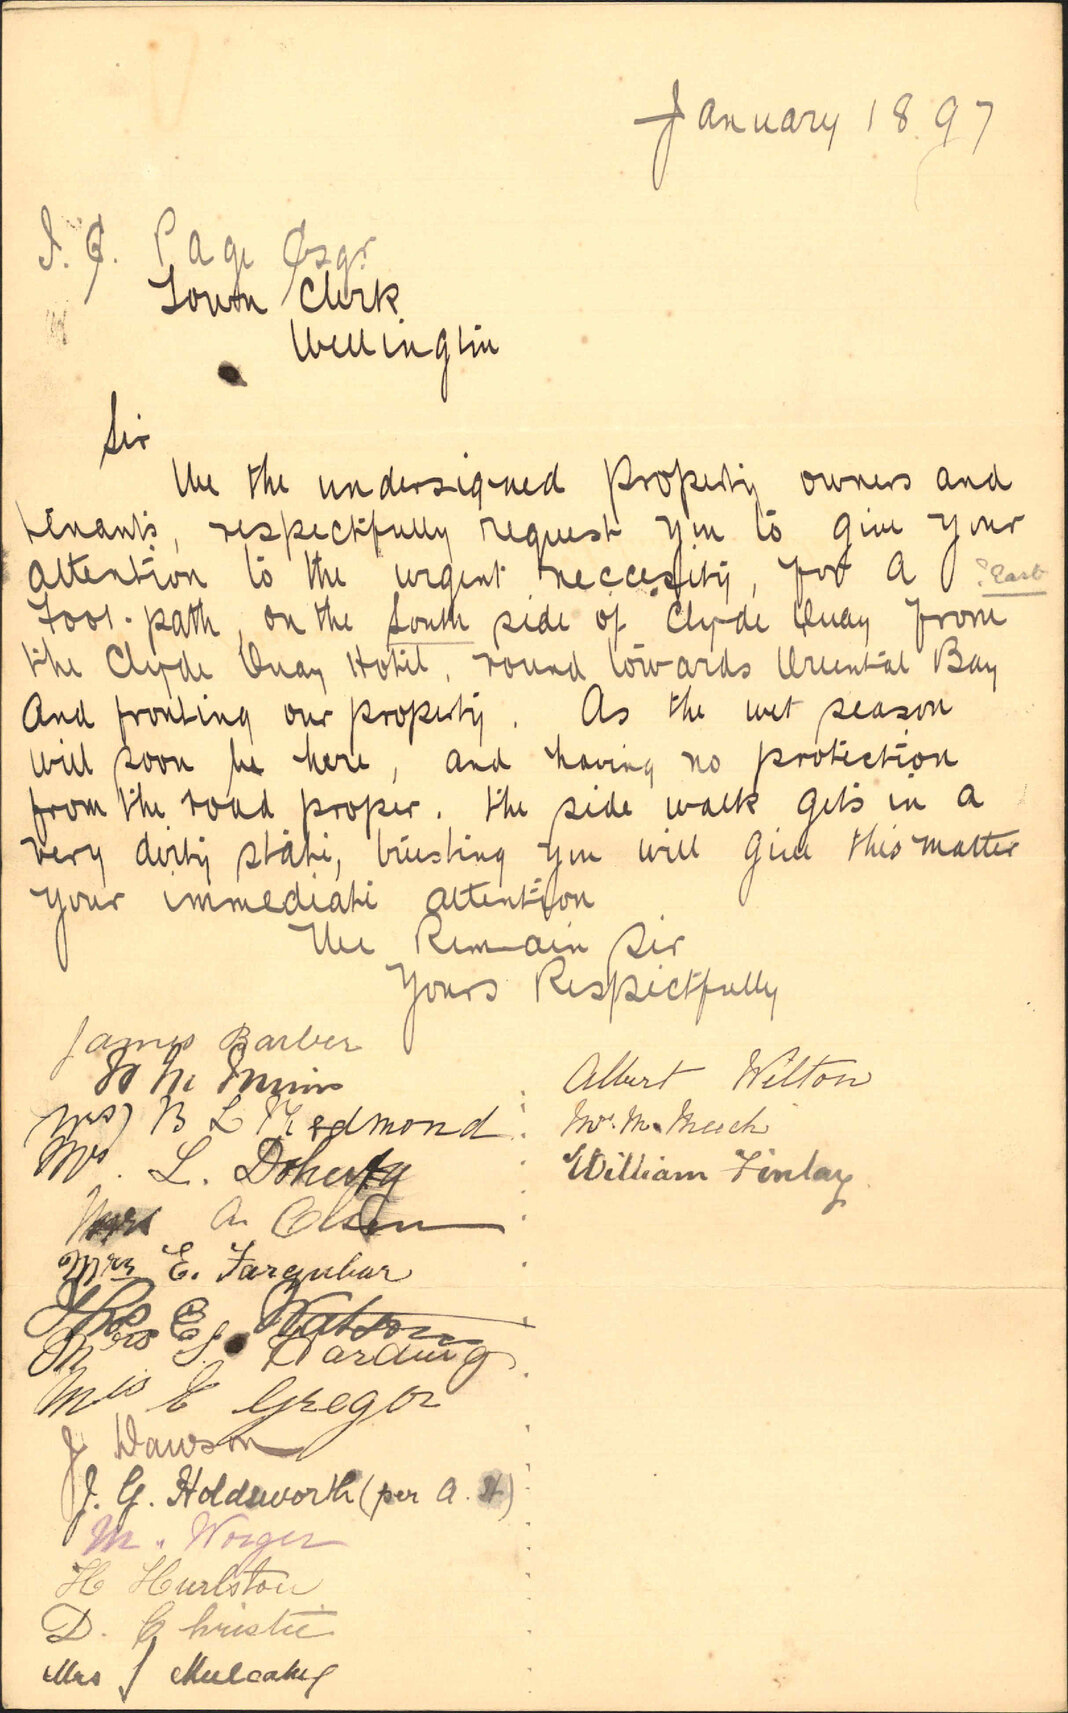 January 1897
J. C. Page Esqr
Town Clerk
Wellington
Sir
We the undersigned Property owners and
tenants, respectfully request you to give your
attention to the urgent neccesity, for a
? East
Foot-path, on the South side of Clyde Quay from
the Clyde Quay Hotel, round towards Oriental Bay
And fronting our property. As the wet season
will soon be here, and having no protection
from the road proper. the side walk gets in a
very dirty state, trusting you will give this matter
your immediate attention
We Remain Sir
Yours Respectfully
James Barber
Mrs B L Redmond
Mrs. L. Doherty
Mrs A. Olsen
Mrs E. Farquhar
Thos E Watson
Mrs E J Harding
Mrs E Gregor
J Dawson
J. G. Holdsworth (per A. H)
M. Worger
H Hurlston
D. Christie
Mrs J Mulcahy
Albert Wilton
Mrs. M. Meech
William Finlay